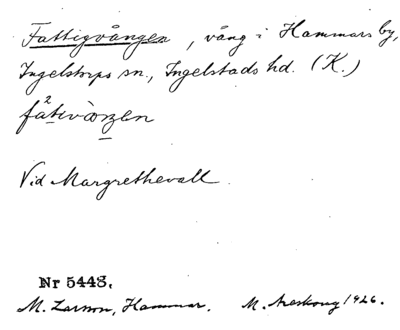 Fattigvången, vång i Hammars by,
Ingelstorps sn., Ingelstads hd. (K.)
Vid Margrethevall.
Nr 5443.
M. Larson, Hammar. M. Areskoug 1926.